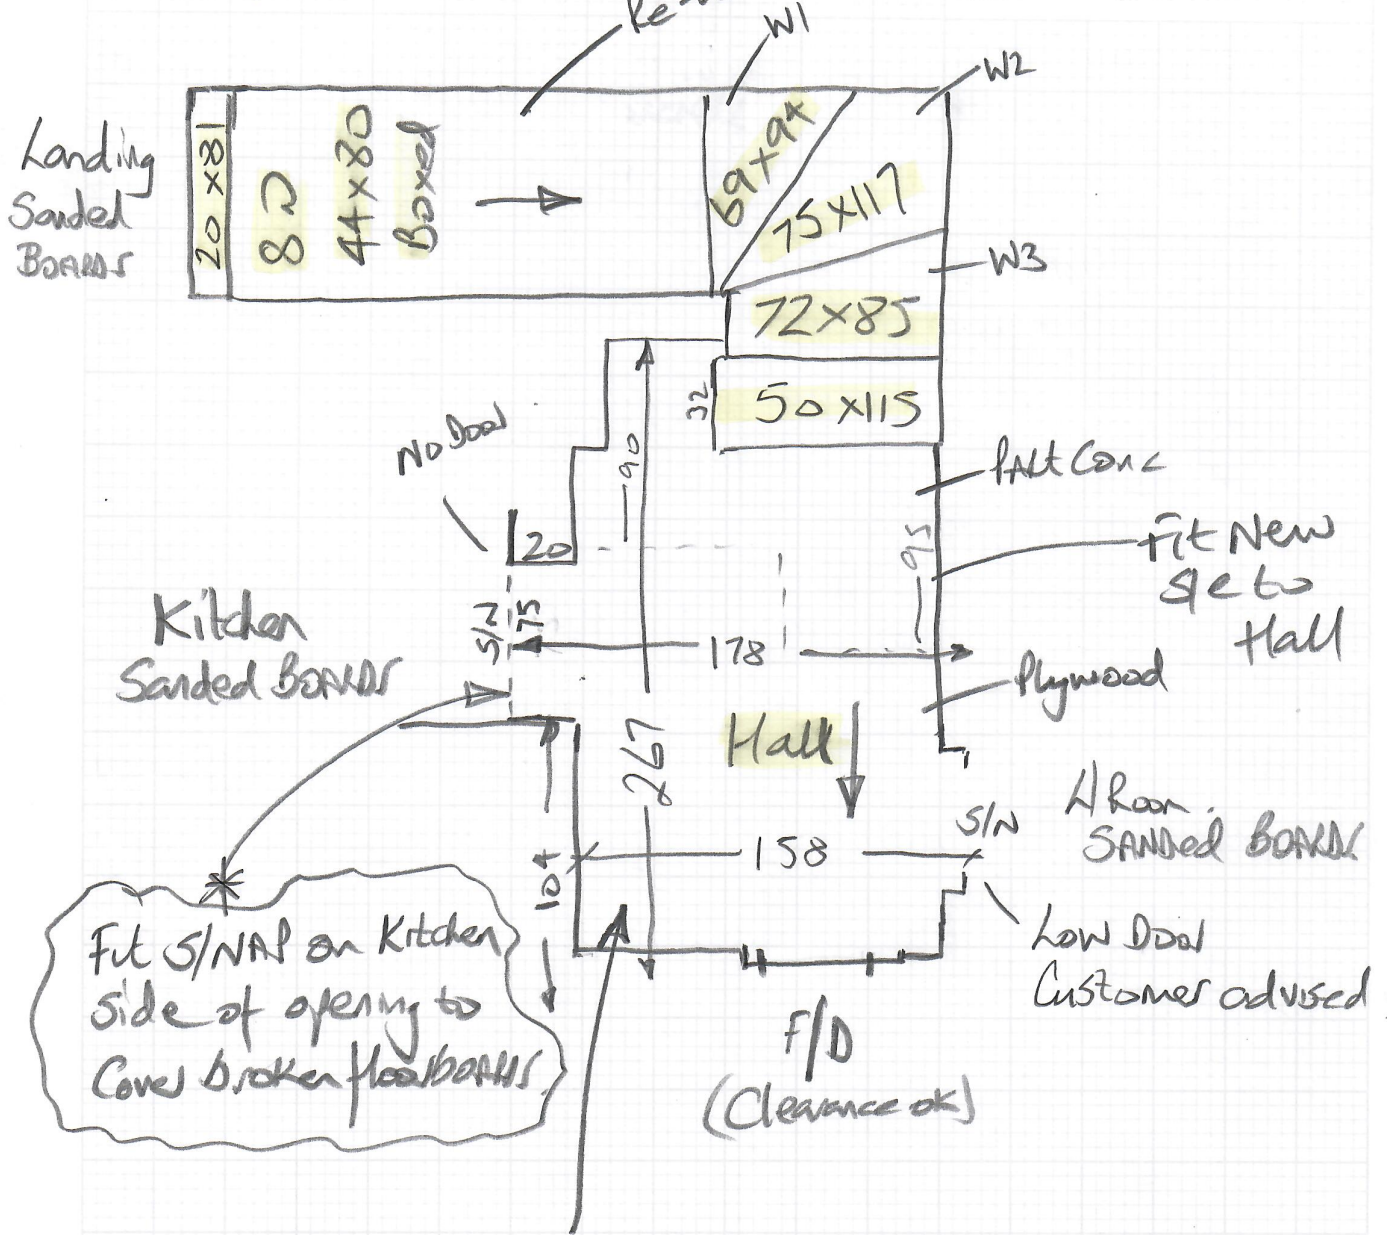 Re-
W1
W2
W3
Landing
Sanded
BOARDS
20 x 81
8D
44x80
Boxed
69x94
75x117
72x85
50x115
32
No Door
90
20
Part Conc
Fit New
g/e to
Hall
95
S/N
75
178
Kitchen
Sanded BOARDS
Plywood
Hall
267
104
158
S/N
L/Room.
SANDed BOARDS
Low Door
Customer advised
Fit S/NAP on Kitchen
side of opening to
Cover broken floorboards
F/D
(Clearance ok)